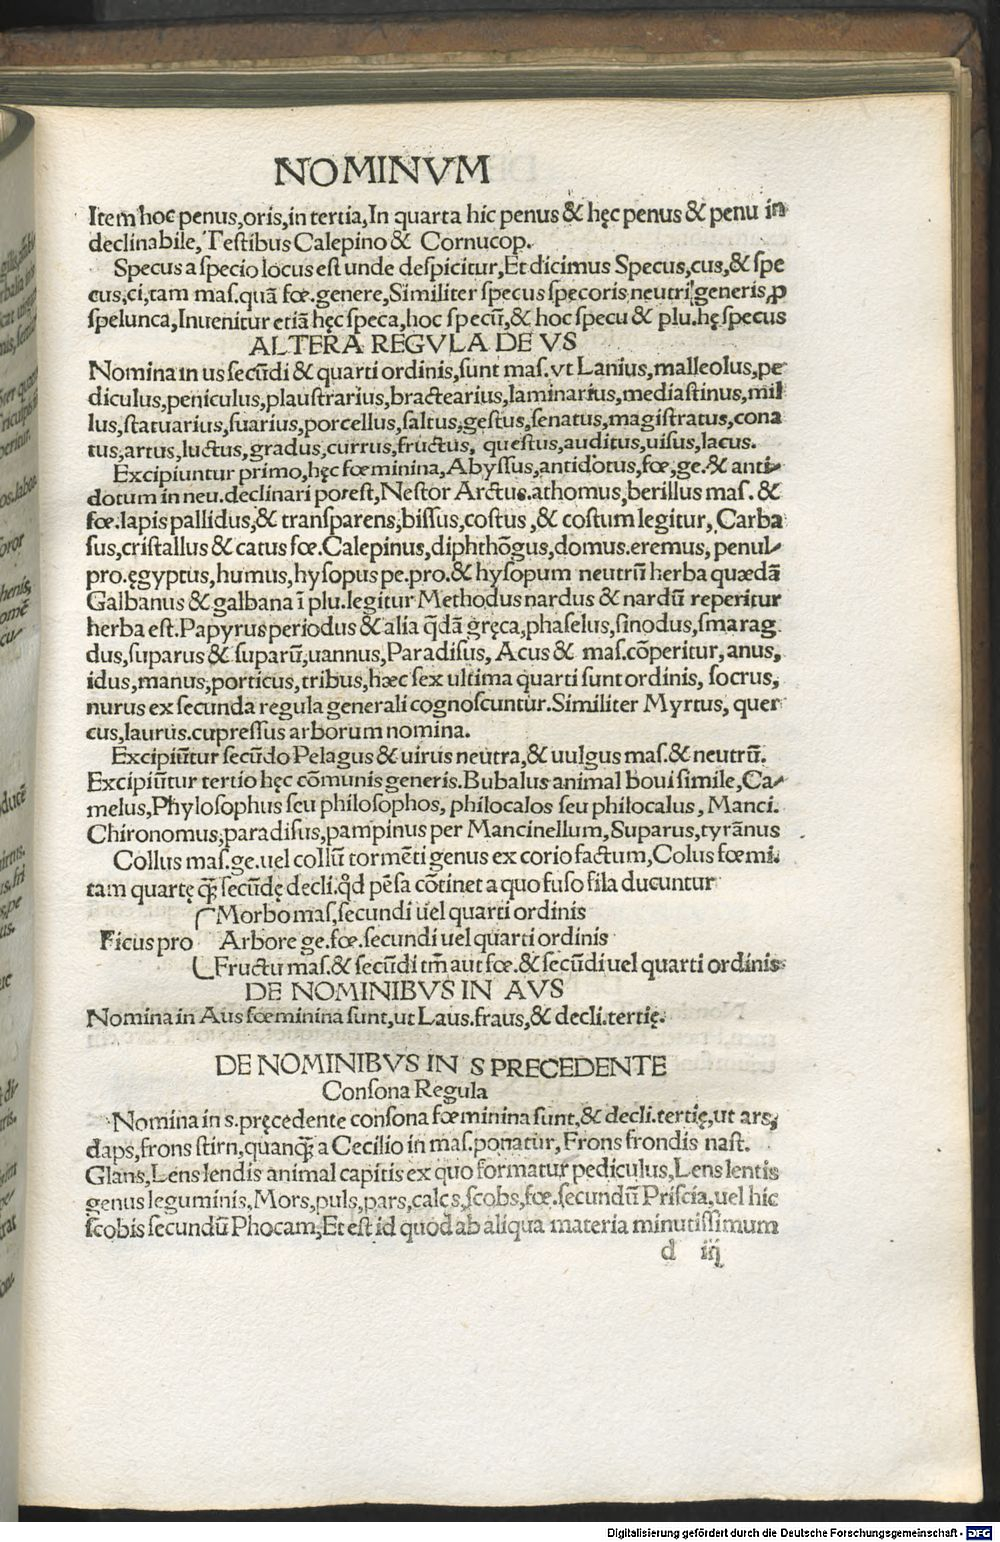 NOMINVM
Item hoc penus,oris,in tertia,In quarta hic penus & hęc penus & penu in
declinabile, Testibus Calepino & Cornucop.
Specus a specio locus est unde despicitur,Et dicimus Specus,cus,& spe
cus,ci,tam mas.quã fœ.genere,Similiter specus specoris neutri generis,ꝓ
spelunca,Inuenitur etiã hęc speca,hoc specũ,& hoc specu & plu.hę specus
ALTERA REGVLA DE VS
Nomina in us secũdi & quarti ordinis,sunt mas.vt Lanius,malleolus,pe
diculus,peniculus,plaustrarius,bractearius,laminarius,mediastinus,mil
lus,statuarius,suarius,porcellus,saltus,gestus,senatus,magistratus,cona
tus,artus,luctus,gradus,currus,fructus, questus,auditus,uisus,lacus.
Excipiuntur primo,hęc fœminina,Abyssus,antidotus,fœ,ge.& anti-
dotum in neu.declinari potest,Nestor Arctus.athomus,berillus mas. &
fœ.lapis pallidus,& transparens,bissus,costus ,& costum legitur, Carba
sus,cristallus & catus fœ.Calepinus,diphthõgus,domus.eremus, penul-
pro.ęgyptus,humus,hysopus pe.pro.& hysopum neutrũ herba quædã
Galbanus & galbana ĩ plu.legitur Methodus nardus & nardũ reperitur
herba est.Papyrus periodus & alia q̃dã gręca,phaselus,sinodus,smarag
dus,suparus & suparũ,uannus,Paradisus, Acus & mas.cõperitur, anus,
idus,manus,porticus,tribus,hæc sex ultima quarti sunt ordinis, socrus,
nurus ex secunda regula generali cognoscuntur.Similiter Myrtus, quer
cus,laurus.cupressus arborum nomina.
Excipiũtur secũdo Pelagus & uirus neutra,& uulgus mas.& neutrũ.
Excipiũtur tertio hęc cõmunis generis.Bubalus animal boui simile,Ca-
melus,Phylosophus seu philosophos, philocalos seu philocalus, Manci.
Chironomus,paradisus,pampinus per Mancinellum,Suparus,tyrãnus
Collus mas.ge.uel collũ tormẽti genus ex corio factum,Colus fœmi.
tam quartę q̃ꝫ secũdę decli.qd̃ pẽsa cõtinet a quo fuso fila ducuntur
Morbo mas,secundi uel quarti ordinis
Ficus pro Arbore ge.fœ.secundi uel quarti ordinis
Fructu mas.& secũdi tm̃ aut fœ.& secũdi uel quarti ordinis
DE NOMINIBVS IN AVS
Nomina in Aus fœminina sunt,ut Laus.fraus,& decli.tertię.
DE NOMINIBVS IN S PRECEDENTE
Consona Regula
Nomina in s.pręcedente consona fœminina sunt,& decli.tertię,ut ars,
daps,frons stirn,quanqꝫ a Cecilio in mas.ponatur, Frons frondis nast.
Glans,Lens lendis animal capitis ex quo formatur pediculus,Lens lentis
genus leguminis,Mors,puls,pars,calcs,scobs,fœ.secundũ Priscia,uel hic
scobis secundũ Phocam,Et est id quod ab aliqua materia minutissimum
d iij
Digitalisierung gefördert durch die Deutsche Forschungsgemeinschaft - DFG